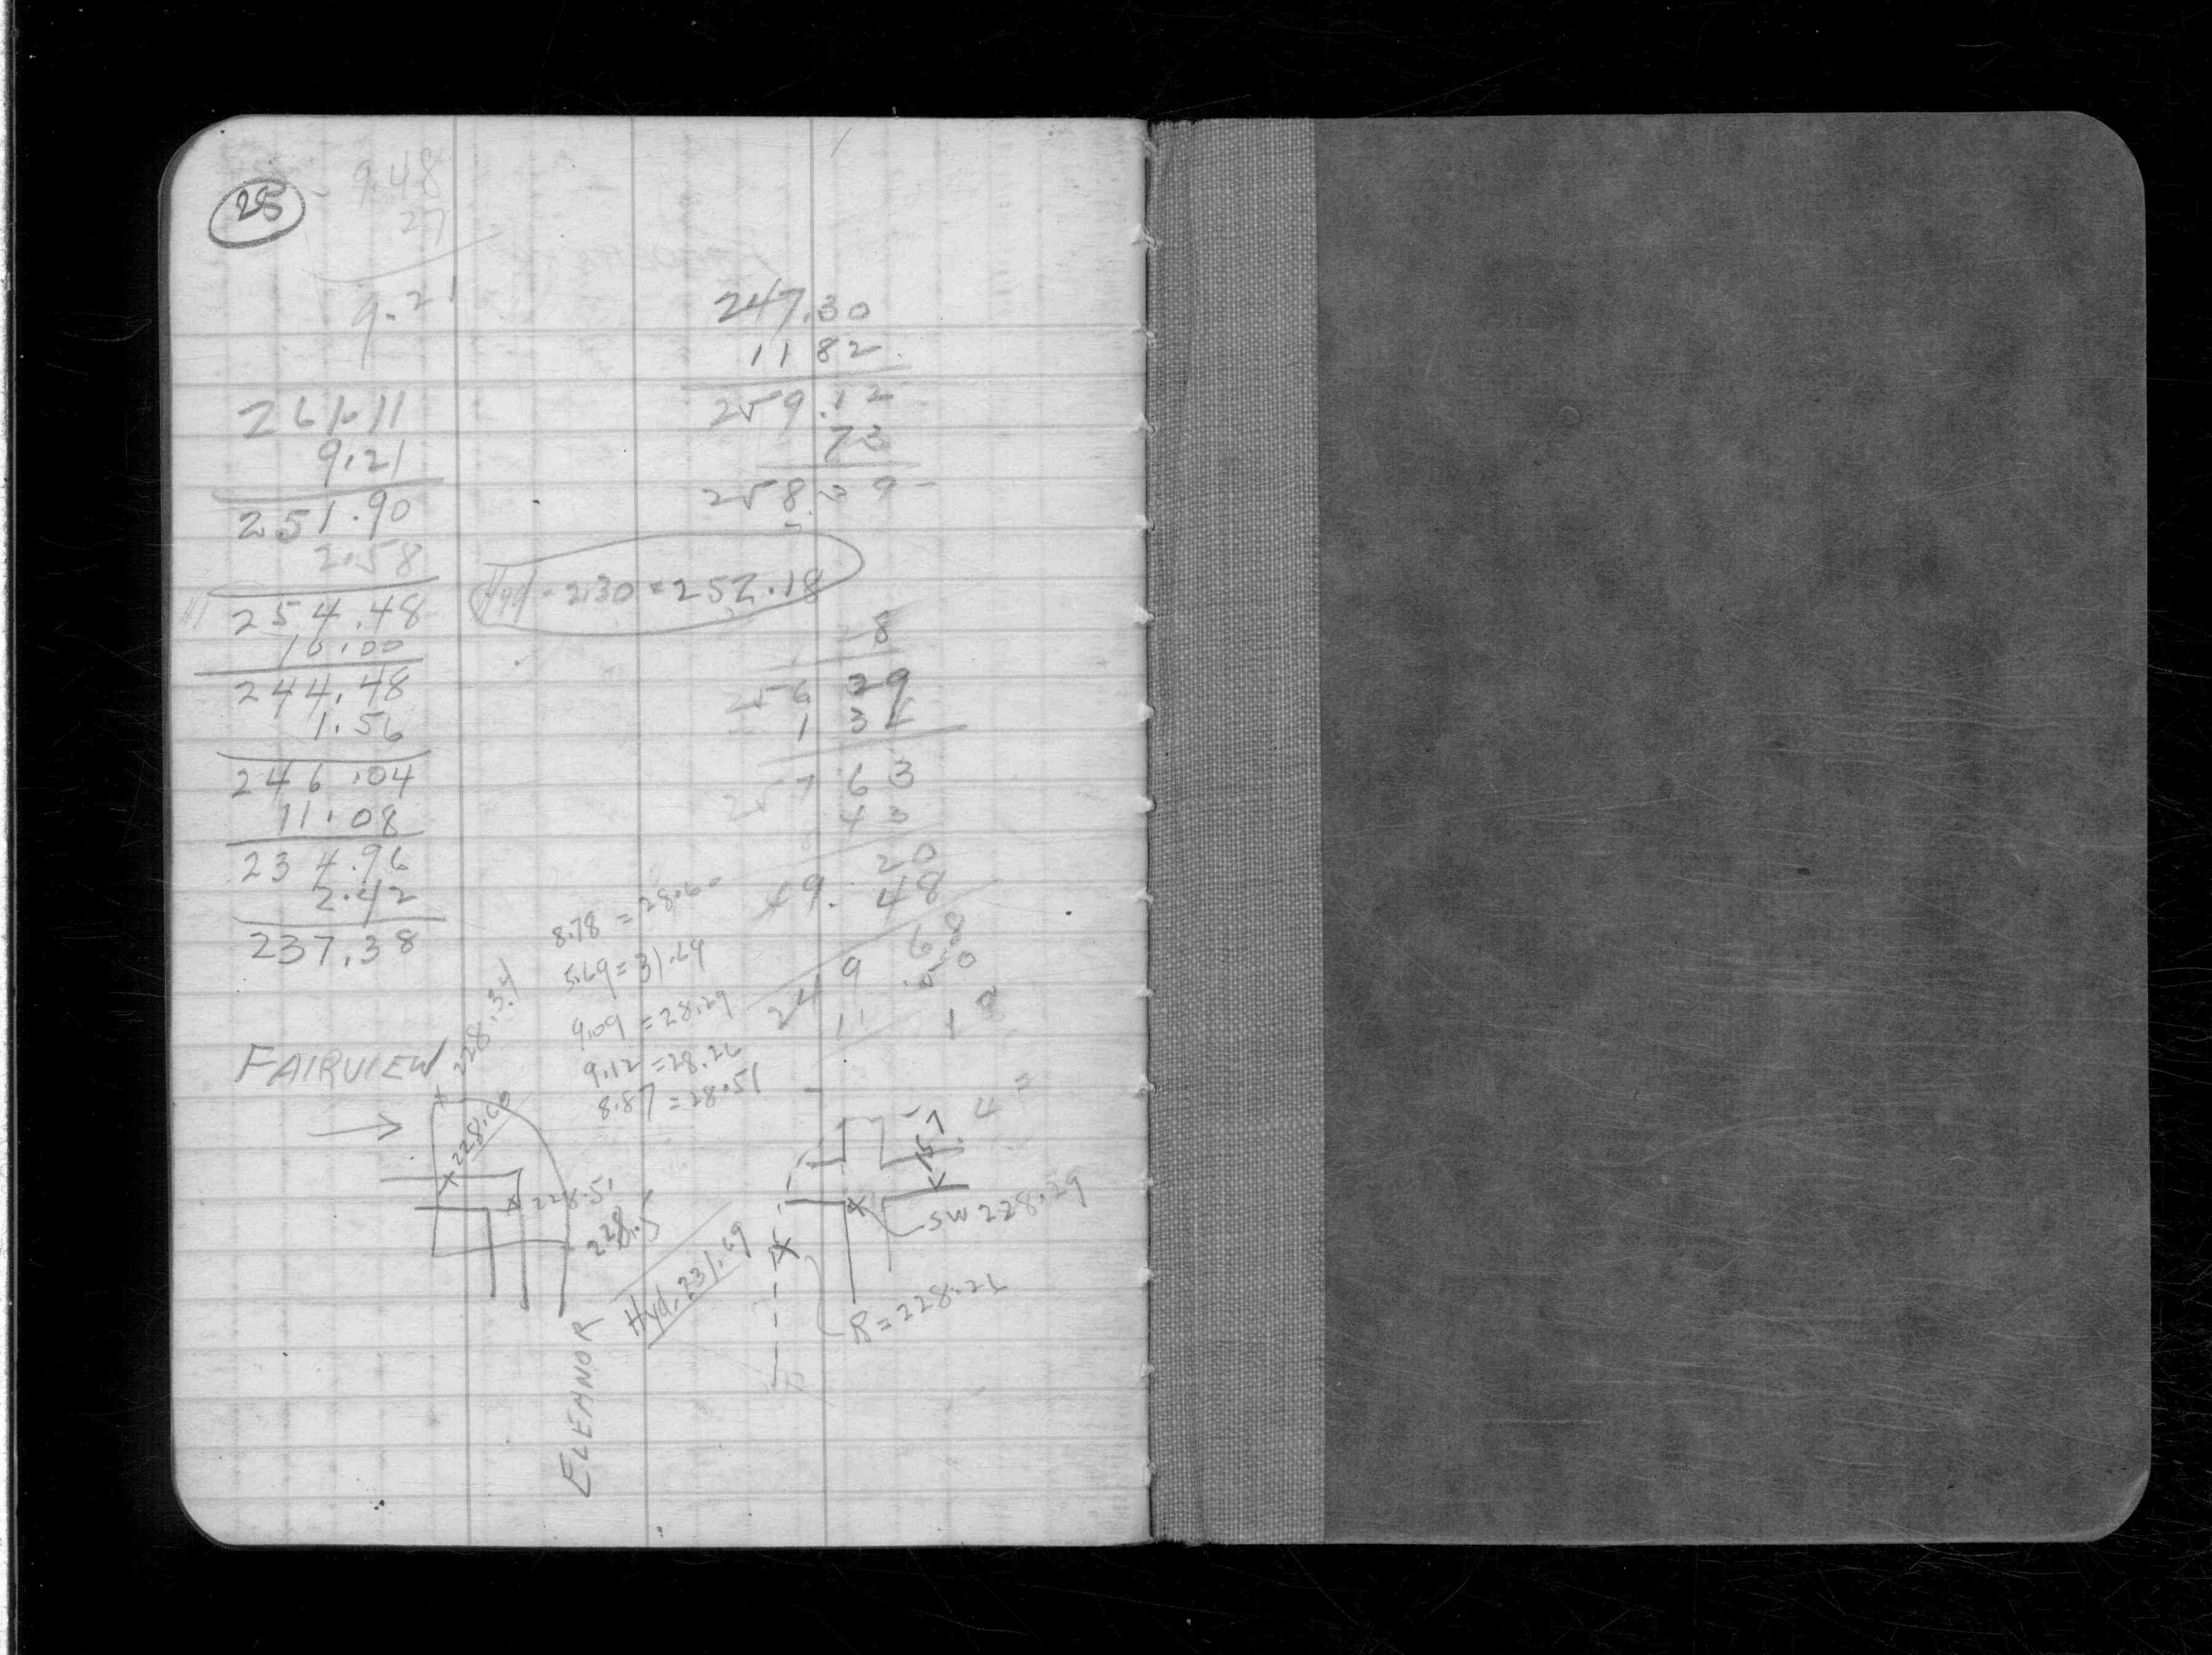 25
9.48
27
9.21
261.11
9.21
251.90
2.58
#1 254.48
10.00
244.48
1.56
246.04
11.08
234.96
2.42
237.38
247.30
11 82
259.12
73
258.39
Hyd - 2.30 = 252.18
8
256 29
1 34
257 63
43
20
49. 48
249 68
.50
11 18
8.78 = 28.60
5.69 = 31.69
9.09 = 28.29
9.12 = 28.26
8.87 = 28.51
FAIRVIEW
228.34
228.60
228.51
228.5
ELEANOR
Hyd. 231.69
157
SW 228.29
R = 228.26